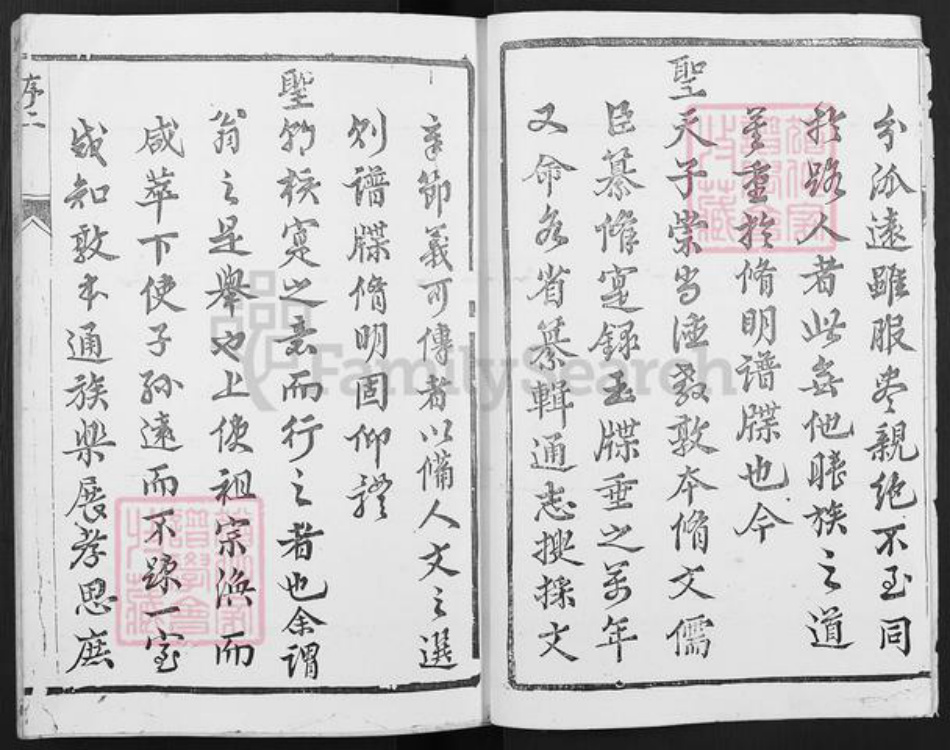 分派遠雖服盡親絕不至同
於路人者此無他睦族之道
莫重於脩明譜牒也今
聖天子崇尚經教敦本脩文儒
臣纂脩寔錄玉牒垂之萬年
又命各省纂輯通志搜採文
章節義可傳者以備人文之選
則譜牒脩明固仰體
聖朝核寔之意而行之者也余謂
翁之是舉也上使祖宗渙而
咸萃下使子孫遠而不踈一室
咸知敦本通族樂展孝思庶
序二
FamilySearch